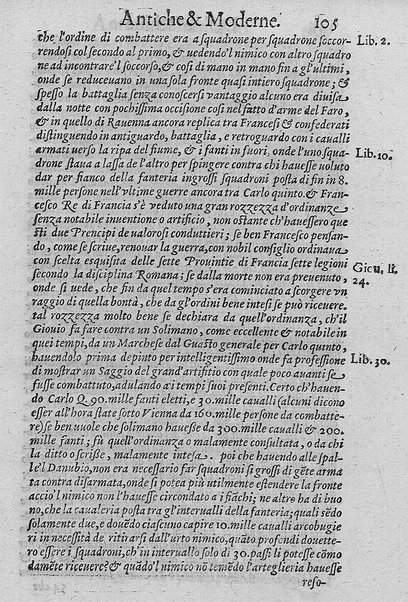 Antiche & Moderne. 105
che l'ordine di combattere era a squadrone per squadrone soccor-
rendosi col secondo al primo, & uedendo'l nimico con altro squadro
ne ad incontrare'l soccorso, & cosi di mano in mano fin a gl'ultimi,
onde se reduceuano in una sola fronte quasi intiero squadrone; &
spesso la battaglia senza conoscersi vantaggio alcuno era diuisa
dalla notte con pochissima occisione cosi nel fatto d'arme del Faro,
& in quello di Rauenna ancora replica tra Francesi & confederati
distinguendo in antiguardo, battaglia, e retroguardo con i caualli
armati uerso la ripa del fiume, & i fanti in fuori, onde l'uno squa-
drone staua a lassa de l'altro per spingere contra chi hauesse uoluto
dar per fianco della fanteria ingrossi squadroni posta di fin in 8.
mille persone nell'vltime guerre ancora tra Carlo quinto. & Fran-
cesco Re di Francia s'è veduto una gran rozzezza d'ordinanze
senza notabile inuentione o artificio, non ostante ch'hauessero que
sti due Prencipi de ualorosi conduttieri; se ben Francesco pensan-
do, come se scriue, renouar la guerra, con nobil consiglio ordinaua
con scelta esquisita delle sette Prouintie di Francia sette legioni
secondo la disciplina Romana; se dalla morte non era preuenuto,
onde si uede, che fin da quel tempo s'era cominciato a scorgere vn
raggio di quella bontà, che da gl'ordini bene intesi se può riceuere.
tal rozzezza molto bene se dechiara da quell'ordinanza, ch'il
Giouio fa fare contra un Solimano, come eccellente & notabile in
quei tempi, da un Marchese dal Guasto generale per Carlo quinto,
hauendolo prima depinto per intelligentissimo onde fa professione
di mostrar un Saggio del grand'artificio con quale poco auanti se
fusse combattuto, adulando ai tempi suoi presenti. Certo ch'hauen-
do Carlo Q. 90. mille fanti eletti, e 30. mille caualli (alcuni dicono
esser all'hora state sotto Vienna da 160. mille persone da combatte-
re) se ben uuole che solimano hauesse da 300. mille caualli & 200.
mille fanti; fù quell'ordinanza o malamente consultata, o da chi
la ditto o scrisse, malamente intesa. poi che hauendo alle spal-
le'l Danubio, non era necessario far squadroni si grossi di gẽte arma
ta contra disarmata, onde si potea più utilmente estendere la fronte
acciò'l nimico non l'hauesse circondato a i fiãchi; ne altro ha di buo
no, che la caualeria posta tra gl'interualli della fanteria; quali sẽdo
solamente due, e douẽdo ciascuno capire 10. mille caualli arcobugie
ri in necessità de ritirarsi dall'urto nimico, quãto profondi douette-
ro essere i squadroni, ch'in interuallo solo di 30. passi li potesse cõmo
damẽte riceuere? & quãdo'l nimico nõ temẽdo l'arteglieria hauesse
reso-
Lib. 2.
Lib. 10.
Giou. li.
24.
Lib. 30.